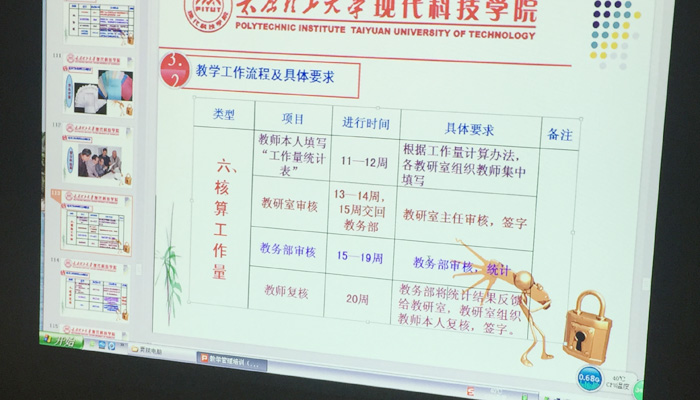 太原理工大学现代科技学院
POLYTECHNIC INSTITUTE TAIYUAN UNIVERSITY OF TECHNOLOGY
3.2
教学工作流程及具体要求
类型 项目 进行时间 具体要求 备注
六、核算工作量
教师本人填写
“工作量统计
表”
11—12周
根据工作量计算办法，
各教研室组织教师集中
填写
教研室审核
13—14周，
15周交回
教务部
教研室主任审核，签字
教务部审核
15—19周
教务部审核，统计
教师复核
20周
教务部将统计结果反馈
给教研室，教研室组织
教师本人复核，签字。
开始
0.68G
CPU温度